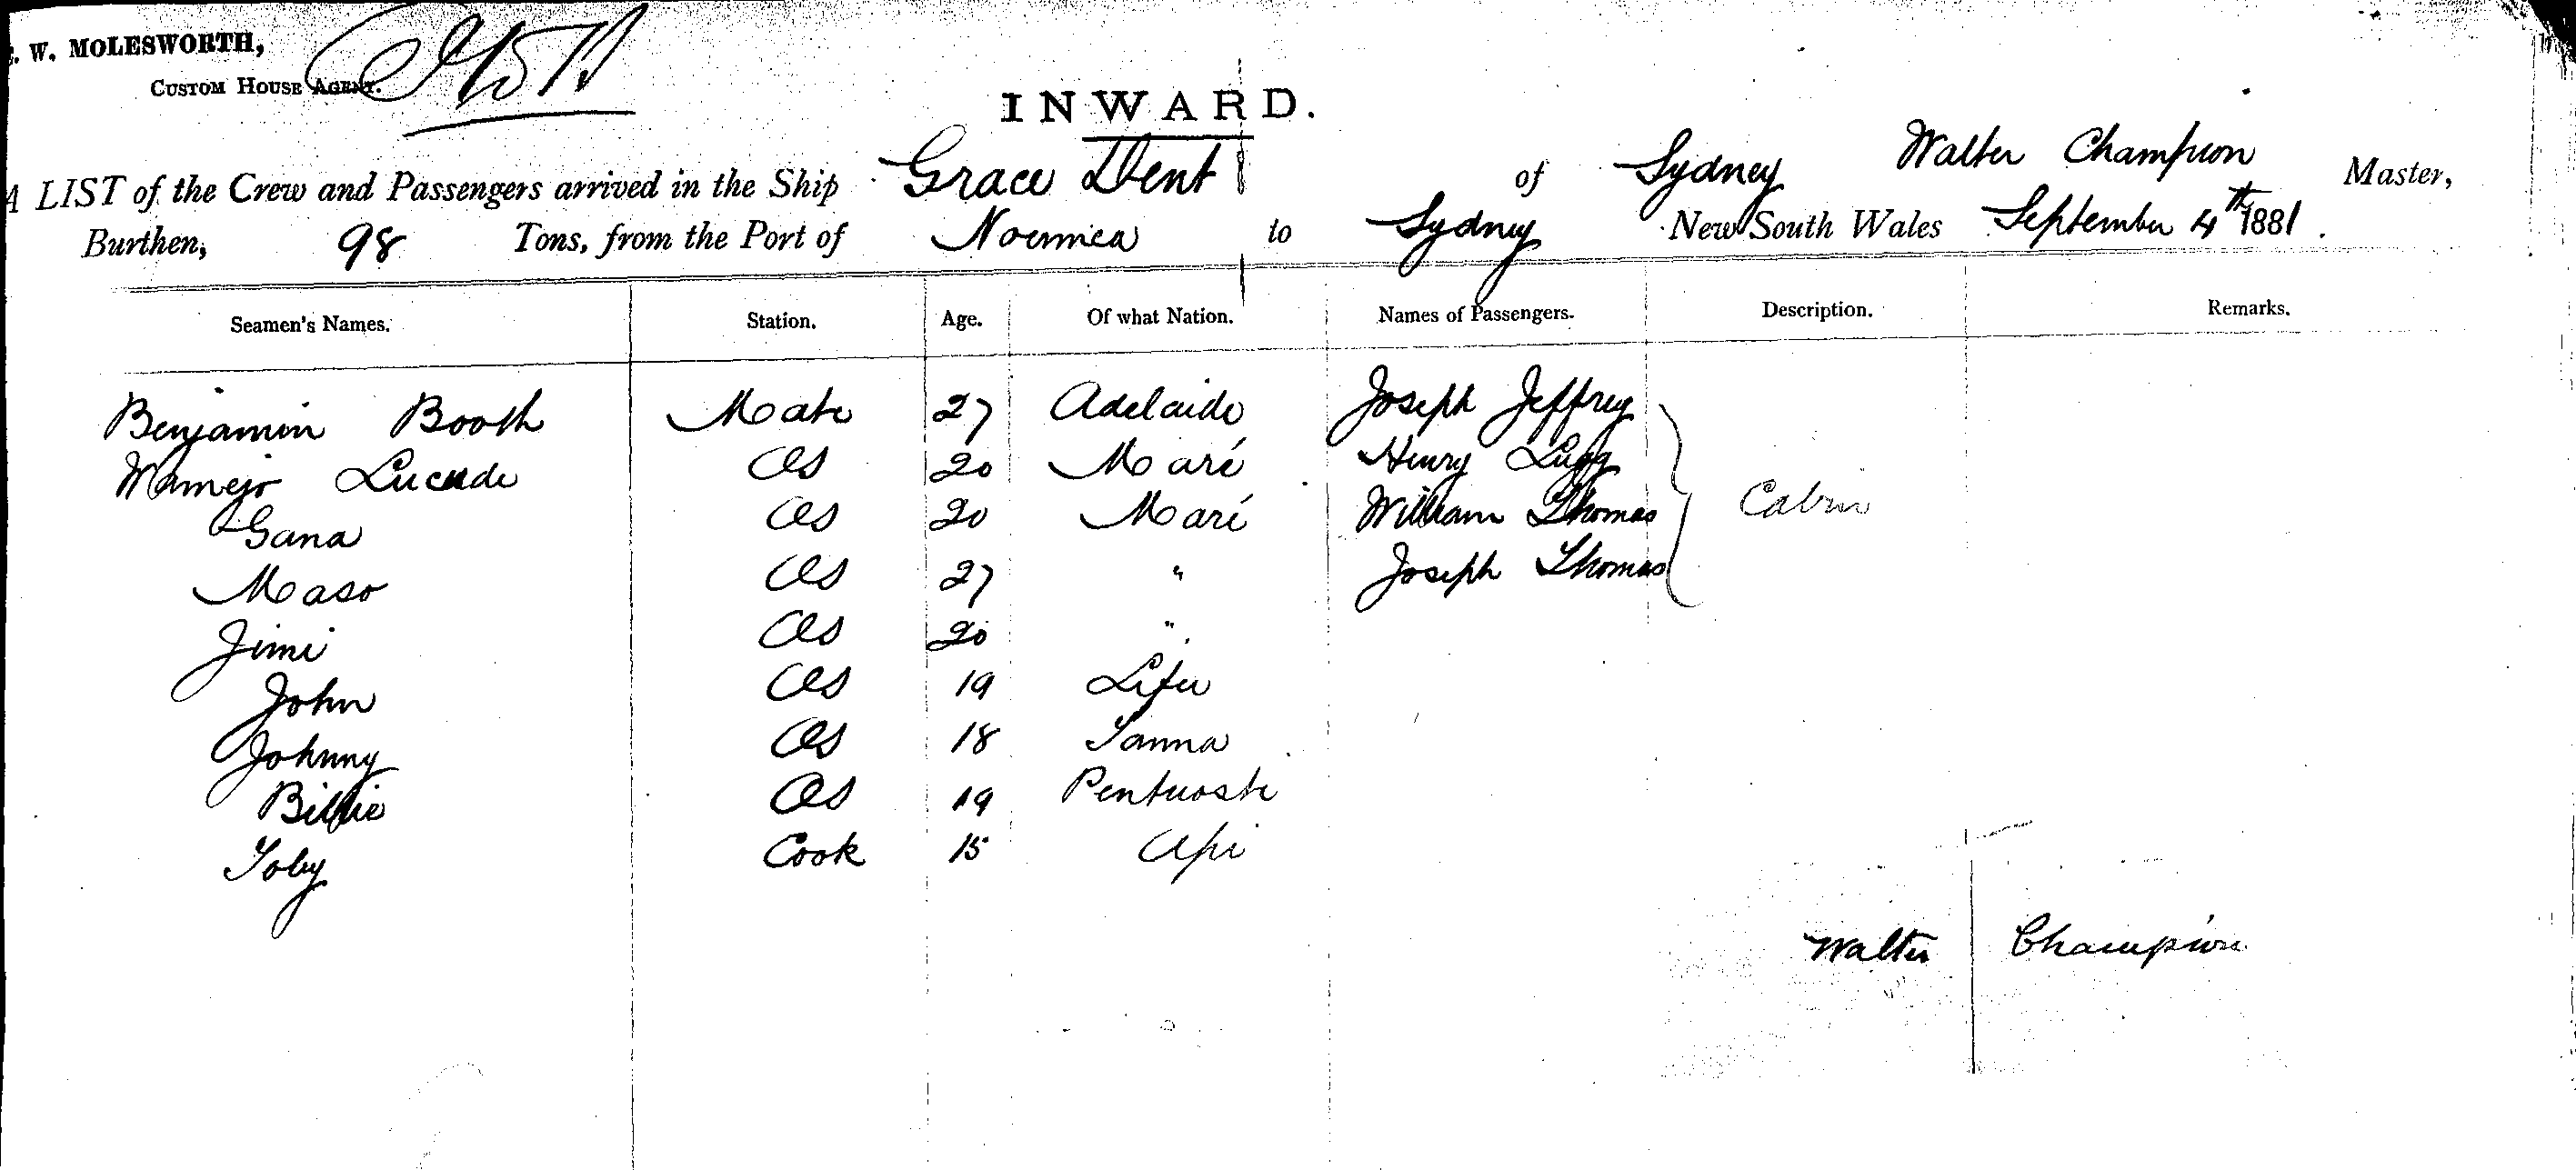 . W. MOLESWORTH,
CUSTOM HOUSE AGENT.
INWARD.
A LIST of the Crew and Passengers arrived in the Ship Grace Dent of Sydney Walter Champion Master,
Burthen, 98 Tons, from the Port of Noumea to Sydney New South Wales September 4th 1881.
Seamen's Names. Station. Age. Of what Nation. Names of Passengers. Description. Remarks.
Benjamin Booth Mate 27 Adelaide Joseph Jeffrey
OS 20 Maré Henry Lugg
Gana OS 20 Maré William Thomas Cabin
Maso OS 27 " Joseph Thomas
Jimi OS 20 "
John OS 19 Lifu
Johnny OS 18 Tanna
Billie OS 19 Pentecoste
Toby Cook 15 Api
Walter Champion